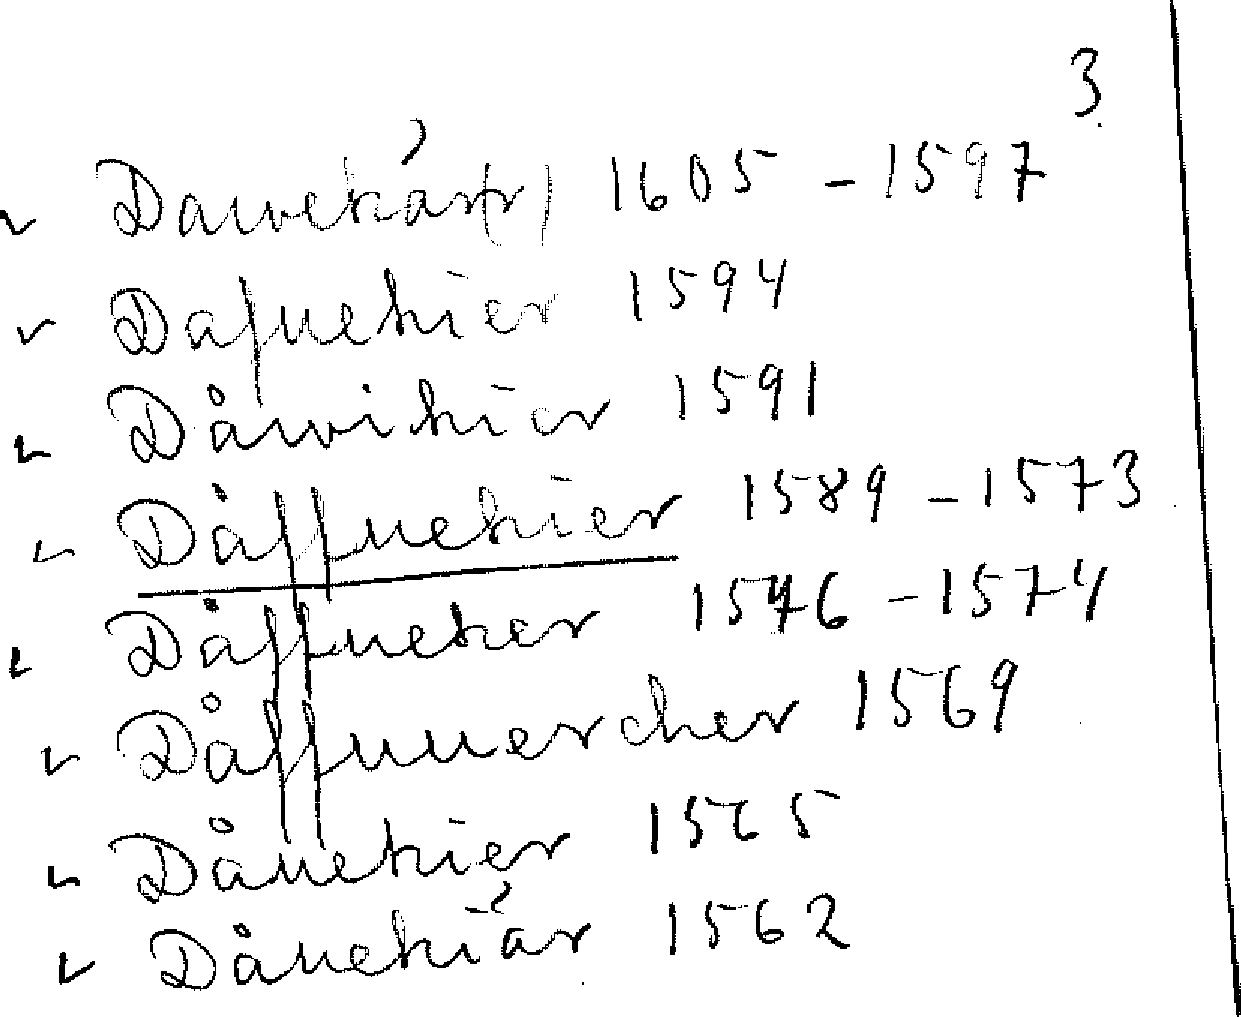 3.
Dauvekár(r) 1605 - 1597
Dafvekier 1594
Dåwikier 1591
Dåffvekier 1589 - 1573
Dåffveker 1576 - 1574
Dåffvuercher 1569
Dåvekier 1565
Dåvekiär 1562